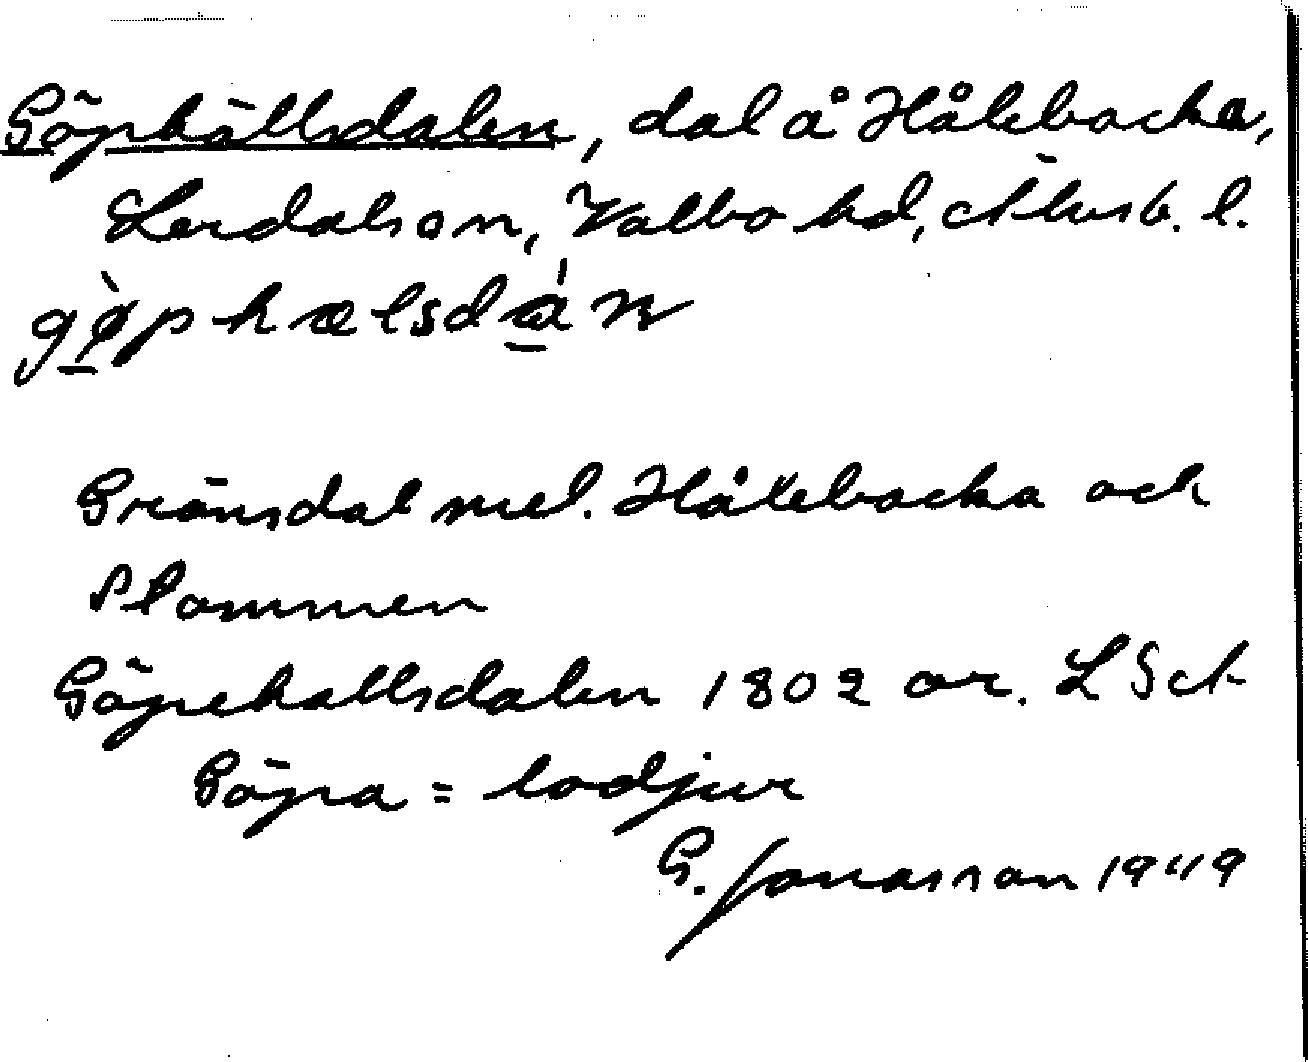 Göphällsdalen, dal å Hålebacka,
Lerdals sn, Valbo hd, Älvsb. l.
gø̀phælsdán
Gränsdal mel. Hålebacka och
Plommen
Göpehallsdalen 1802 or. LSA
Göpa = lodjur
G. Jonasson 1949